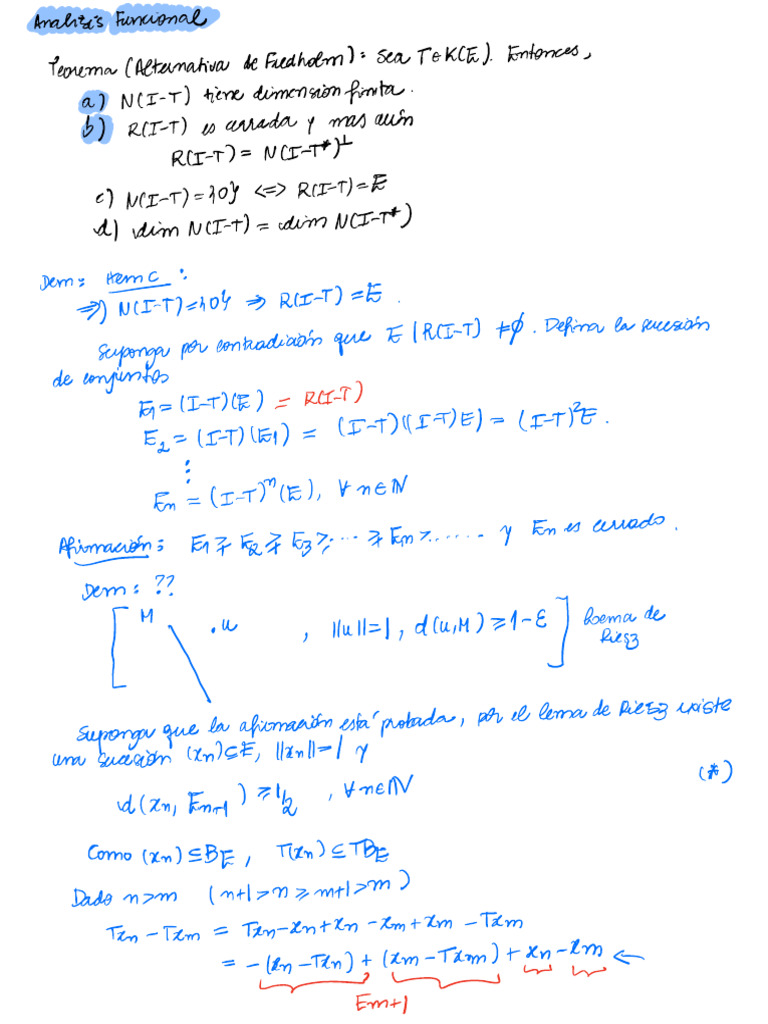 Analisis Funcional
Teorema (Alternativa de Fredholm): Sea T∈K(E). Entonces,
a) N(I-T) tiene dimensión finita.
b) R(I-T) es cerrada y mas aún
R(I-T) = N(I-T*)⊥
c) N(I-T)={0} <=> R(I-T)=E
d) dim N(I-T) = dim N(I-T*)
Dem: Item C :
⇒) N(I-T)={0} ⇒ R(I-T)=E.
Suponga por contradicción que E\R(I-T) ≠∅. Defina la sucesión
de conjuntos
E₁=(I-T)(E) = R(I-T)
E₂ = (I-T)(E₁) = (I-T)((I-T)E) = (I-T)²E.
⋮
En = (I-T)ⁿ(E), ∀n∈ℕ
Afirmación: E₁ ⊋ E₂ ⊋ E₃ ⊋ ... ⊋ En ⊋ ...... y En es cerrado.
Dem: ??
[ M .u , ||u||=1, d(u,M) ≥ 1-ε ] Lema de
Riesz
Suponga que la afirmación está probada, por el lema de Riesz existe
una sucesión (xn)⊆E, ||xn||=1 y
d(xn, En+1) ≥ 1/2, ∀n∈ℕ (*)
Como (xn)⊆BE, T(xn)⊆TBE
Dado n>m (n+1>n≥m+1>m)
Txn-Txm = Txn-xn+xn-xm+xm-Txm
= -(xn-Txn)+(xm-Txm)+xn-xm ←
Em+1